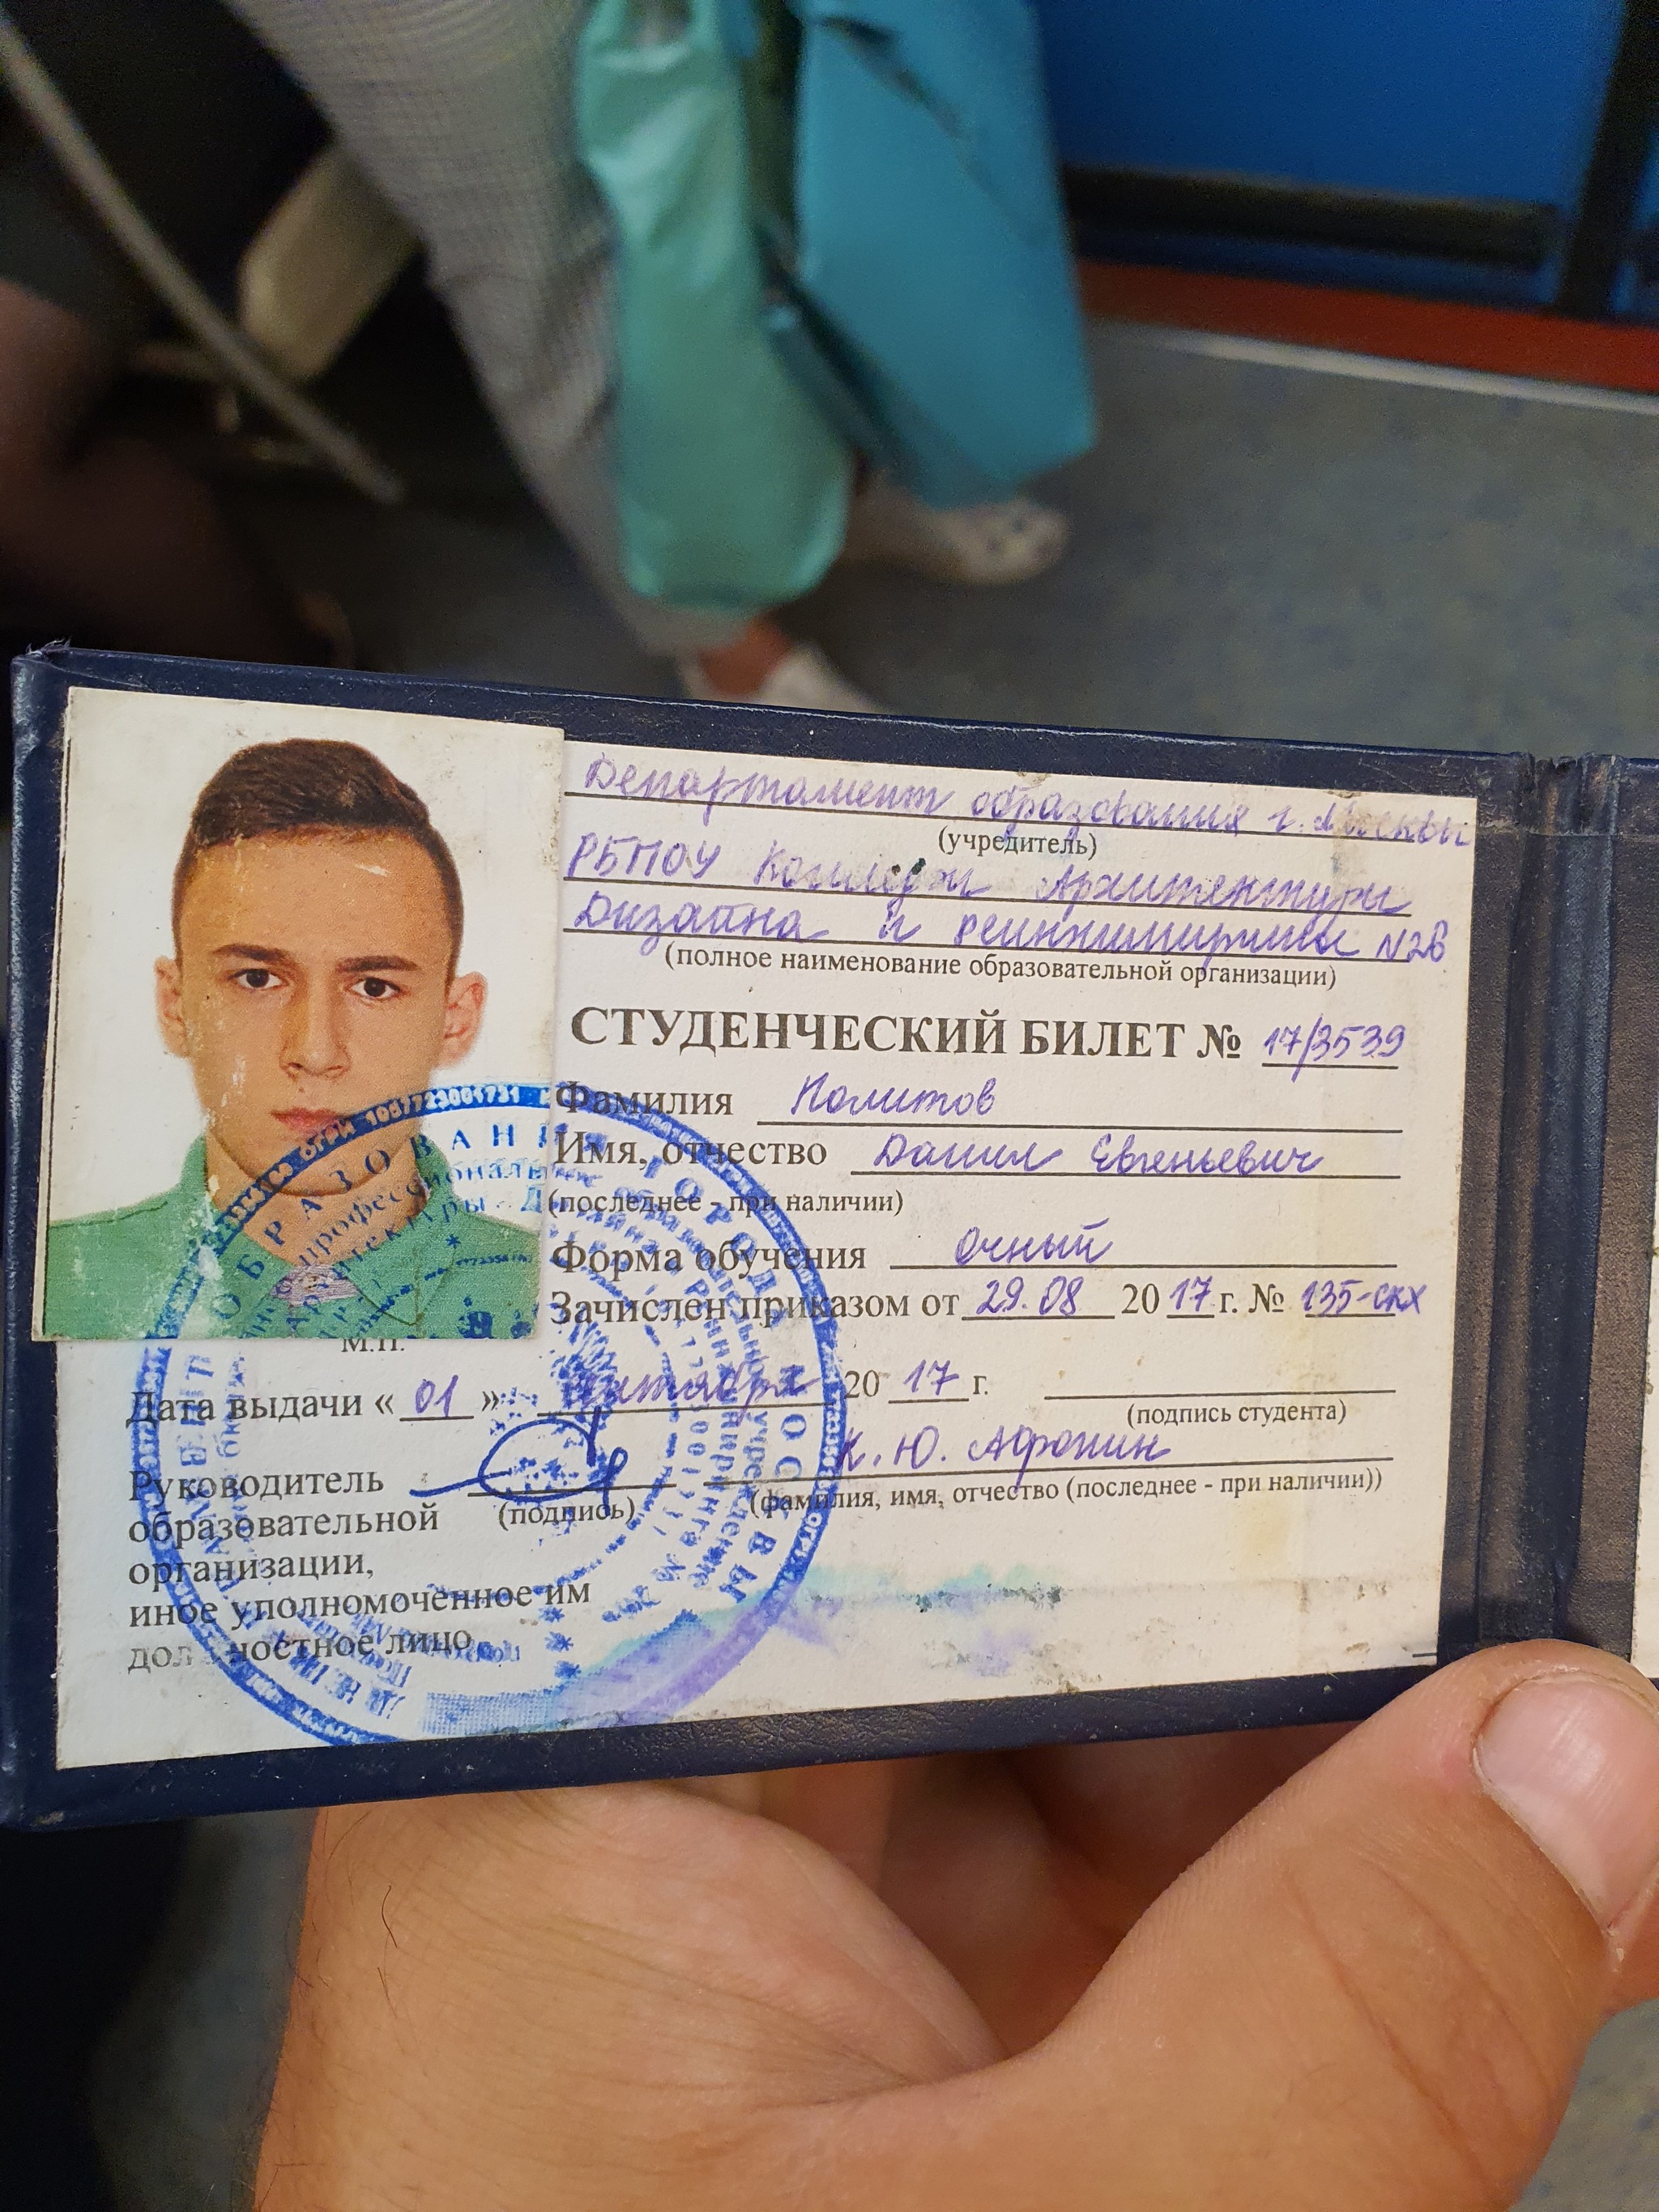 Департамент образования г. Москвы
(учредитель)
РБПОУ Колледж Архитектуры
Дизайна и реинжиниринга №26
(полное наименование образовательной организации)
СТУДЕНЧЕСКИЙ БИЛЕТ № 17/3539
Фамилия
Имя, отчество Данил Евгеньевич
(последнее - при наличии)
Форма обучения очный
Зачислен приказом от 29.08 2017 г. № 135-скх
М.П.
Дата выдачи « 01 » 2017 г.
(подпись студента)
К. Ю. Афонин
Руководитель
образовательной
организации,
иное уполномоченное им
лицо
(подпись)
(фамилия, имя, отчество (последнее - при наличии))
ОБРАЗОВАНИЯ ГОРОДА МОСКВЫ